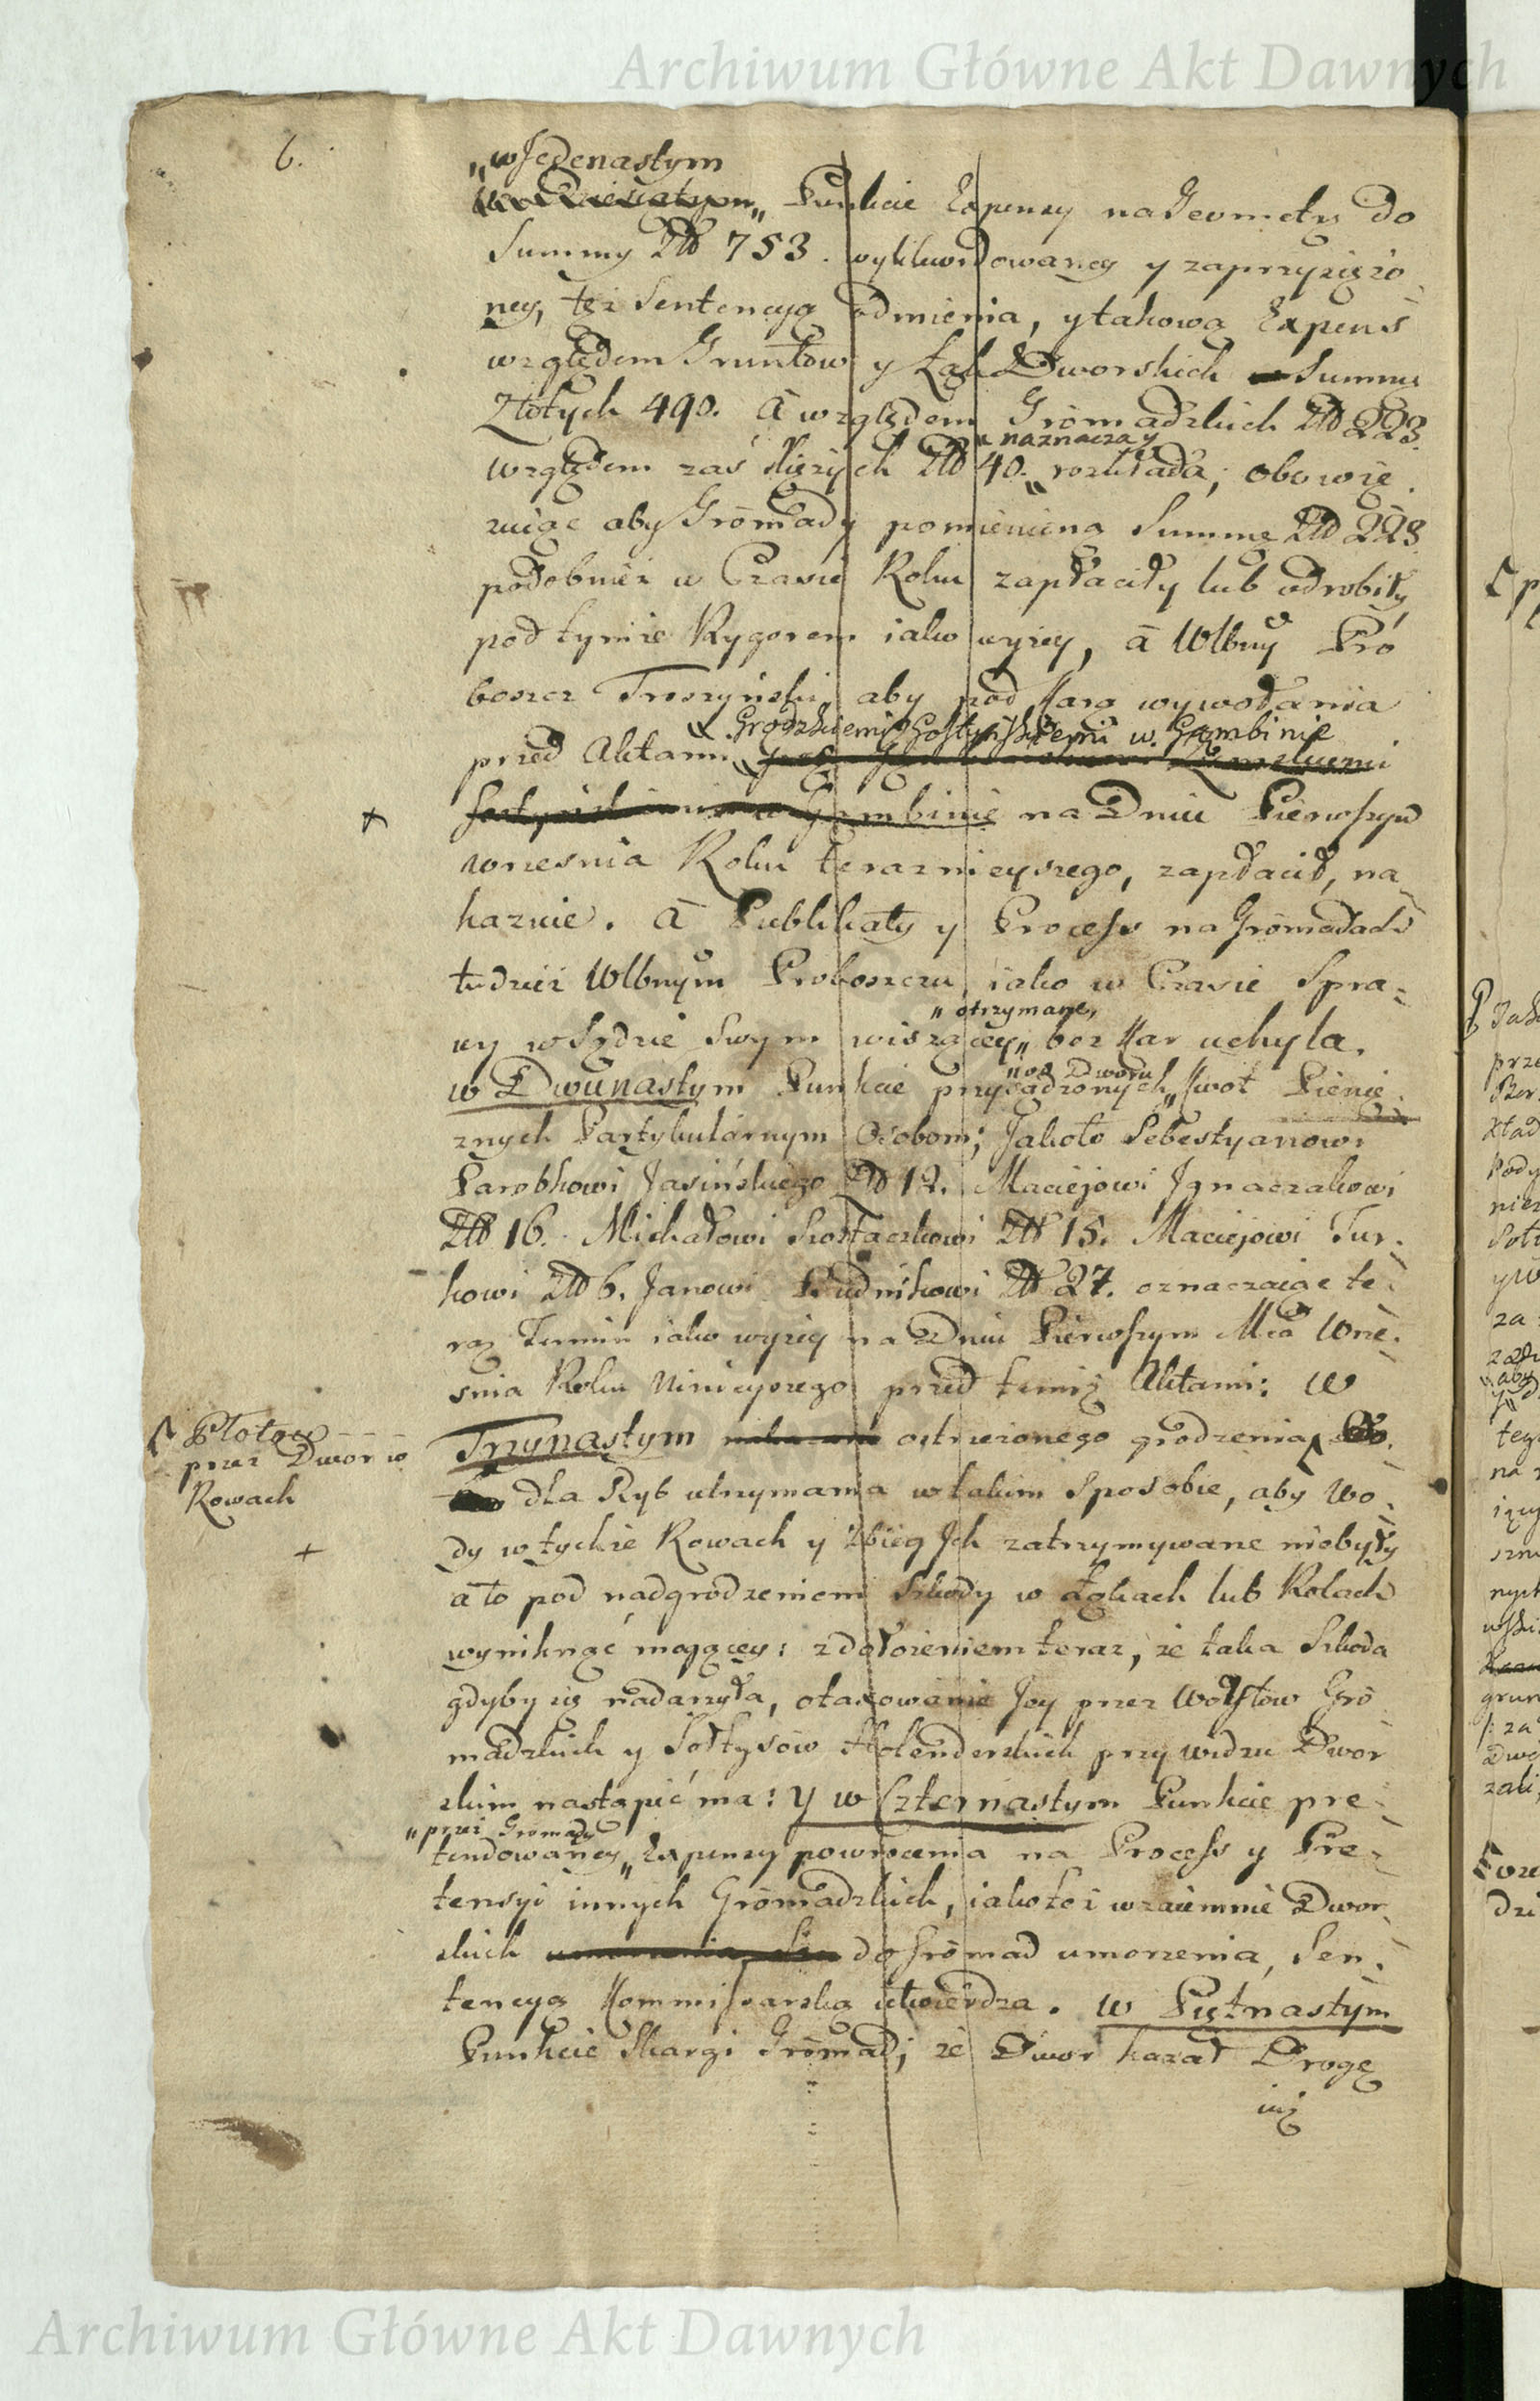 Archiwum Główne Akt Dawnych
6.
„w Jedenastym
w Dziesiątym„ Punkcie Expensy na Geometrę do
Summy Złł 753. wylikwidowaney y zaprzysiężo
ney, też Sentencyą odmienia, y takową Expens
względem Gruntow y Łąk Dworskich Summę
Złotych 490. à względem Gromadzkich Złł 223.
„naznacza y
względem zaś Xiężych Złł 40.„ rozkłada, obowię
zuiąc aby Gromady pomienioną Summę Złł 223
podobnież w Czasie Roku zapłaciły lub odrobiły
pod tymże Rygorem iako wyżey, à Wlbny Pro
boszcz Troszyński aby pod Karą wywołania
„Grodzkiemi Gostyńskiemi w Gąmbinie
przed Aktami„ Ziemskiemi
Gostyńskiemi w Gąmbinie na Dniu Pierwszym
września Roku teraznieyszego, zapłacił, na
kazuie. à Publikaty y Process na Gromadach
tudzież Wlbnym Proboszczu, iako w Czasie Spra-
„otrzymane„
wy w Sądzie Swym wiszącey„ bez Kar uchyla.
„od Dworu
w Dwunastym Punkcie przysądzonych„ Kwot Pienię
znych Partykularnym Osobom; Jakoto Sebestyanowi
Parobkowi Jasińskiego Złł 12. Maciejowi Ignaczakowi
Złł 16. Michałowi Szostaczkowi Złł 15. Maciejowi Tur-
kowi Złł 6. Janowi Rudnikowi Złł 27. oznaczaiąc te
raz Termin iako wyżey na Dniu Pierwszym Mca Wrze-
snia Roku Ninieyszego przed temiż Aktami: W
Płotow
przez Dwór w
Rowach
Trzynastym ostrzeżonego grodzenia
dla Ryb utrzymania w takim Sposobie, aby Wo-
dy w tychże Rowach y zbieg Ich zatrzymywane niebyły
a to pod nadgrodzeniem Szkody w Łąkach lub Rolach
wyniknąć mogącey: z dołożeniem teraz, że taka Szkoda
gdyby się nadarzyła, otaxowanie Jey przez Woytow Gro
madzkich y Sołtysów Holenderskich przy widzu Dwor
skim nastąpić ma: Y w Czternastym Punkcie pre-
„przez Gromady
tendowaney„ Expensy powrocenia na Process y Pre-
tensyi innych Gromadzkich, iakoteż wzaiemnie Dwor
skich do Gromad umorzenia, Sen-
tencyą Kommissarską utwierdza. w Piętnastym
Punkcie Skargi Gromad; że Dwor kazał Drogę
iuż
Archiwum Główne Akt Dawnych